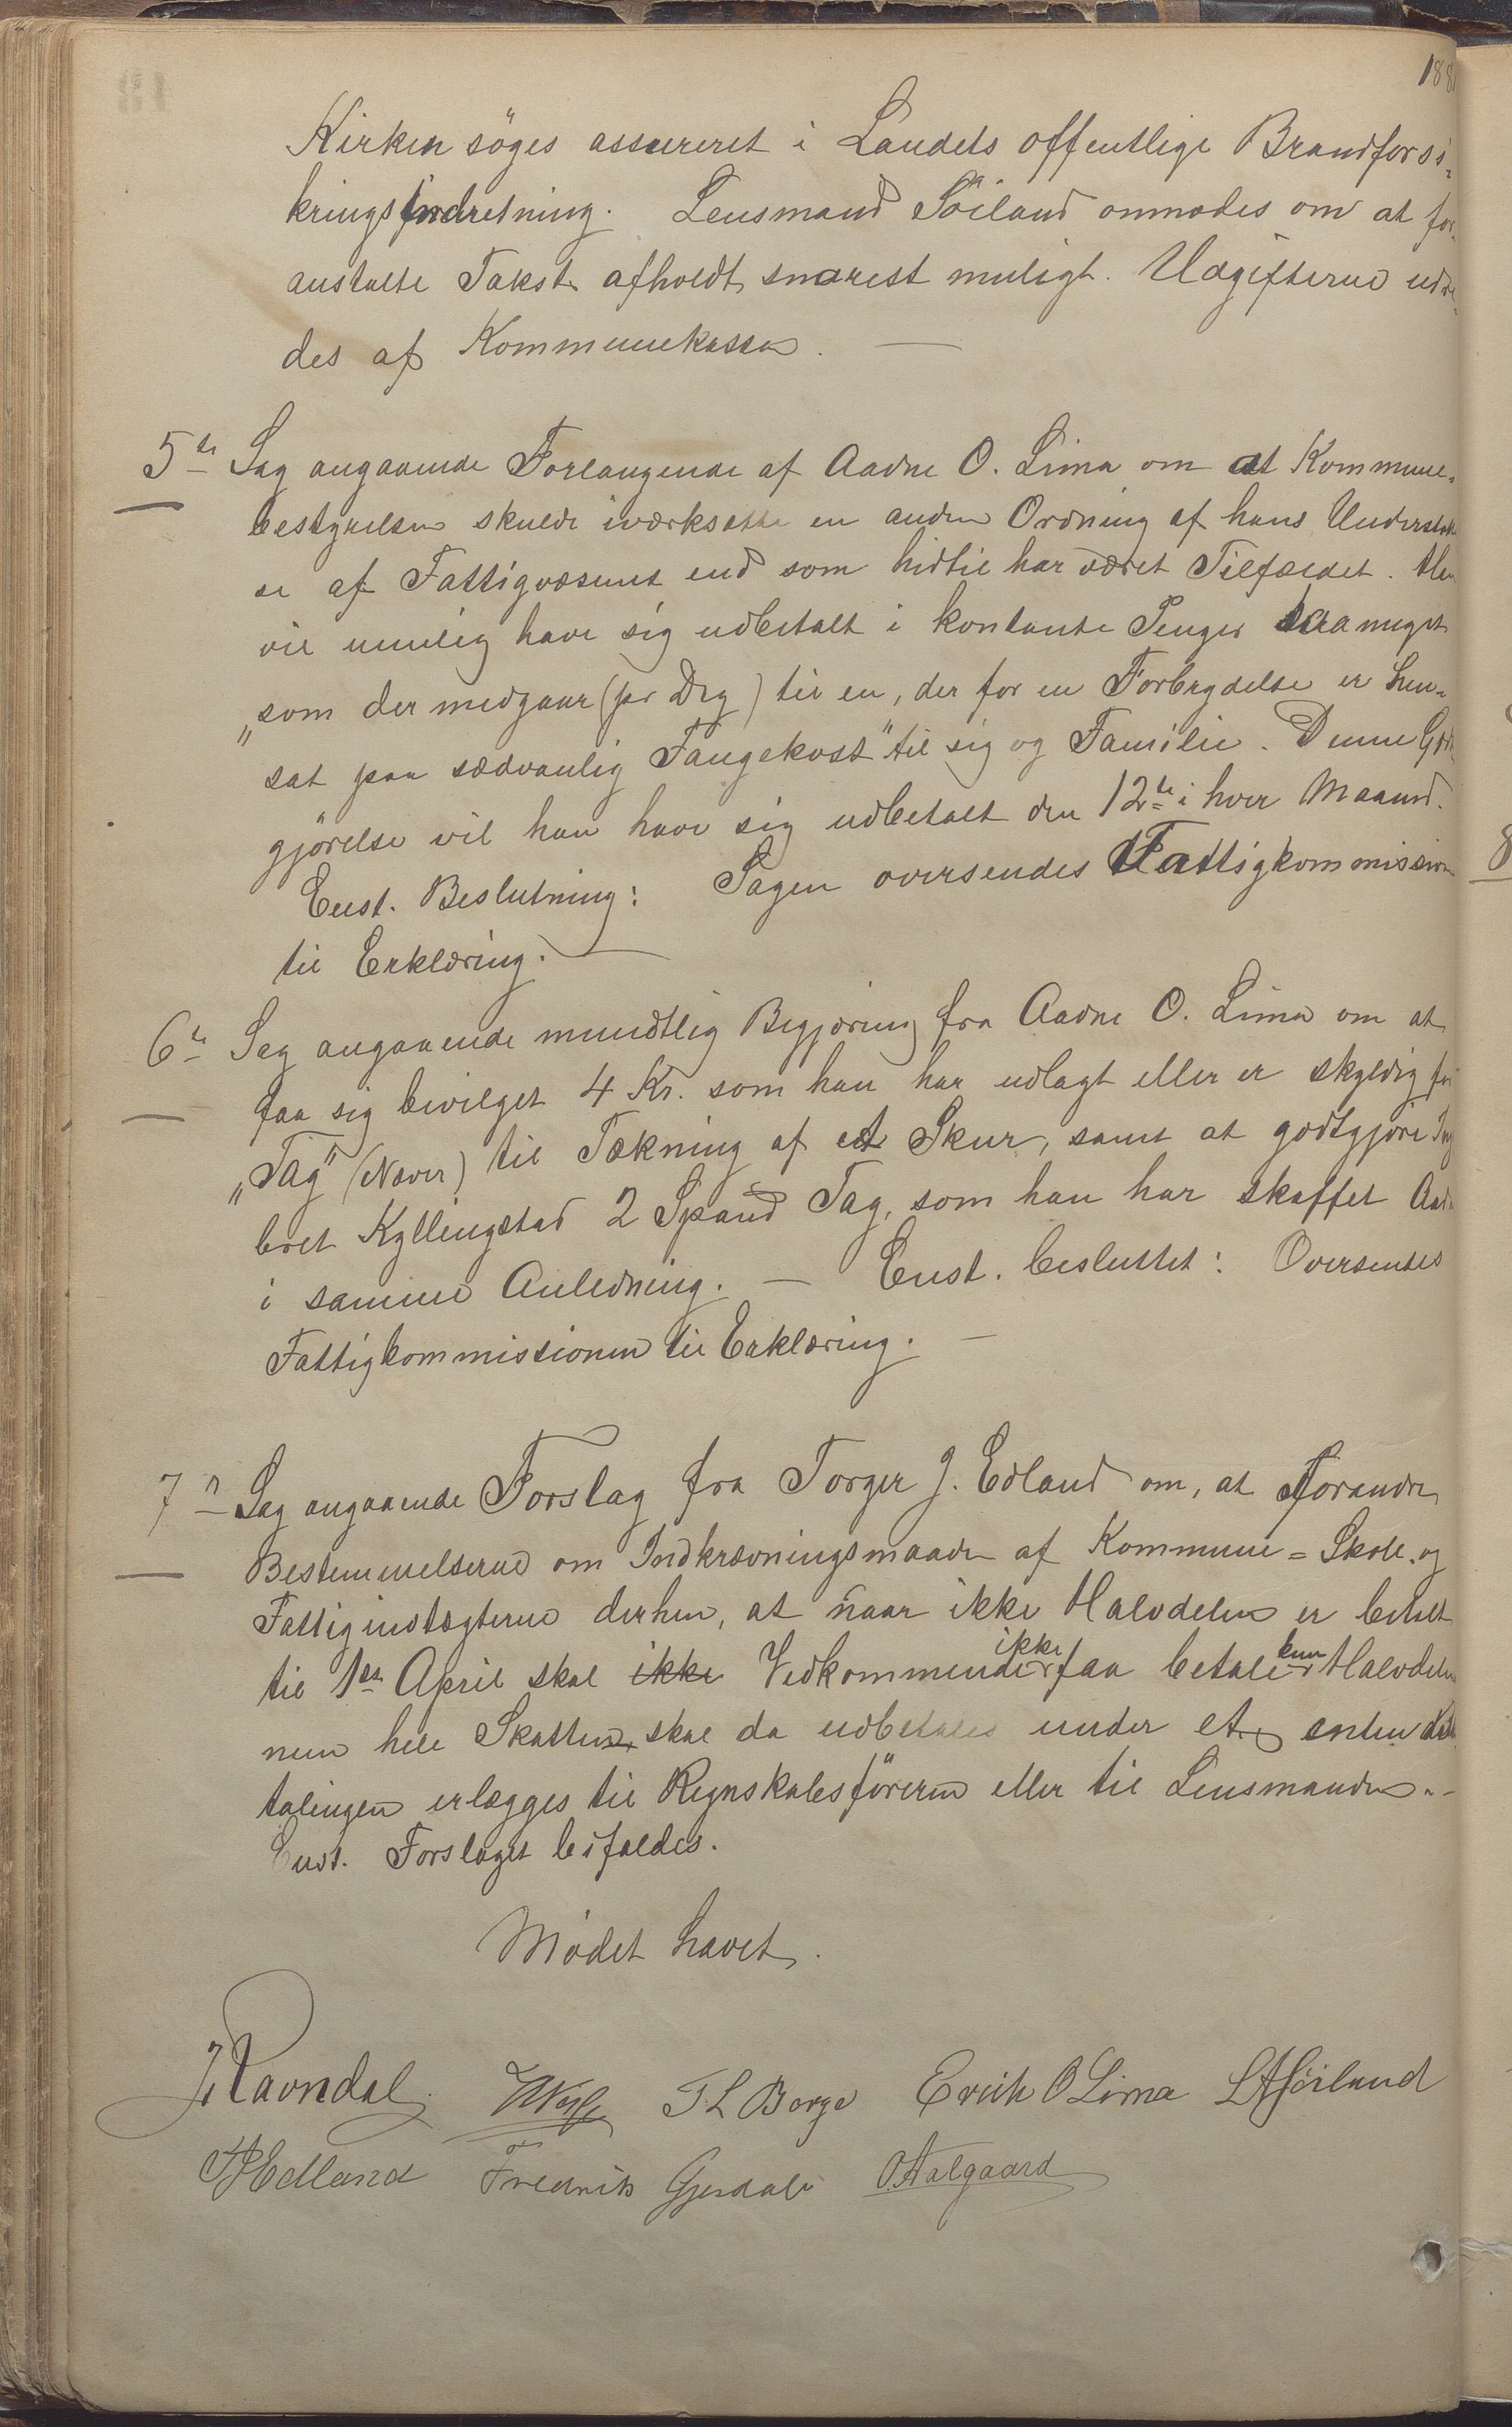 188
Kirken söges assureret i Landets offentlige Brandforsi-
kringsindretning. Lensmand Söiland anmodes om at for-
anstalte Takst afholdt snarest muligt. Udgifterne udre-
des af Kommunekassen. —
5te Sag angaaende Forlangende af Aadne O. Lima om at Kommune-
bestyrelsen skulde iværksætte en anden Ordning af hans Understöttel
se af Fattigvæsenet end som hidtil har været Tilfældet. Han
vil nemlig have sig udbetalt i kontante Penger saa meget
„som der medgaar (pr Dag) til en, der for en Forbrydelse er hen-
sat paa sædvanlig Fangekost" til sig og Familie. Denne Godt
gjörelse vil han have sig udbetalt den 12te i hver Maaned.
Enst. Beslutning: Sagen oversendes Fattigkommission
til Erklæring. —
6te Sag angaaende mundtlig Begjæring fra Aadne O. Lima om at
faa sig bevilget 4 Kr. som han har udlagt eller er skyldig for
„Tag" (Næver) til Tækning af et Skur, samt at godtgjöre Ing
bret Kyllingstad 2 Spand Tag, som han har skaffet Aadne
i samme Anledning. — Enst. besluttet: Oversendes
Fattigkommissionen til Erklæring. —
7de Sag angaaende Forslag fra Torger J. Edland om, at forandre
Bestemmelserne om Indkrævningsmaaden af Kommune- Skole- og
Fattigindtægterne derhen, at naar ikke Halvdelen er betalt
til 1ste April skal ikke Vedkommende ikke faa betale kun Halvdelen
men hele Skatten skal da udbetales under et, enten
talingen erlægges til Regnskabsföreren eller til Lensmanden. -
Enst. Forslaget bifaldes.
Mödet hævet.
J Ravndal T L Berge Erik O Lima L A Söiland
T J Edland Fredrik Gjesdal O. Aalgaard